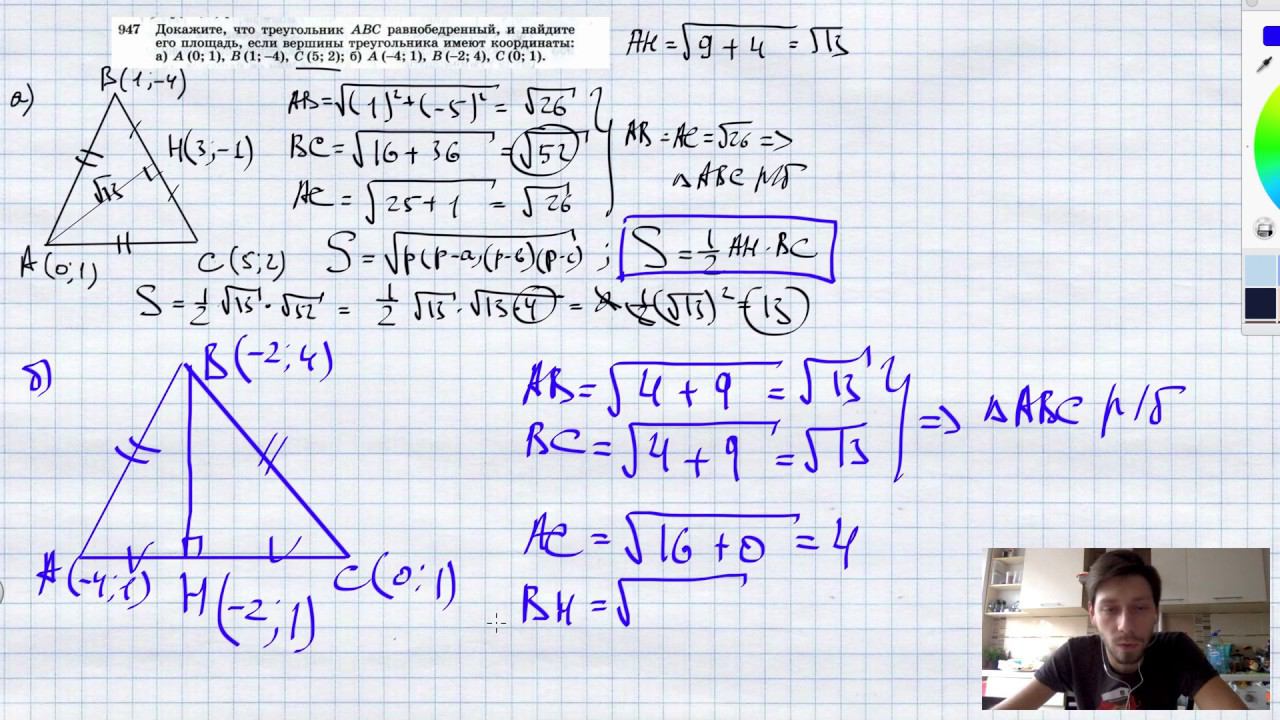 947 Докажите, что треугольник ABC равнобедренный, и найдите
его площадь, если вершины треугольника имеют координаты:
а) A (0; 1), B (1; −4), C (5; 2); б) A (−4; 1), B (−2; 4), C (0; 1).
AH = √9 + 4 = √13
а)
B(1;−4)
H(3;−1)
√13
A(0;1)
C(5;2)
AB = √(1)²+(−5)² = √26
BC = √16 + 36 = √52
AC = √25 + 1 = √26
AB = AC = √26 =>
△ABC р/б
S = √p(p−a)(p−b)(p−c) ; S = ½ AH · BC
S = ½ √13 · √52 = ½ √13 · √13·4 = ½ (√13)² = 13
б)
B(−2;4)
A(−4;1)
H(−2;1)
C(0;1)
AB = √4 + 9 = √13
BC = √4 + 9 = √13
=> △ABC р/б
AC = √16 + 0 = 4
BH = √